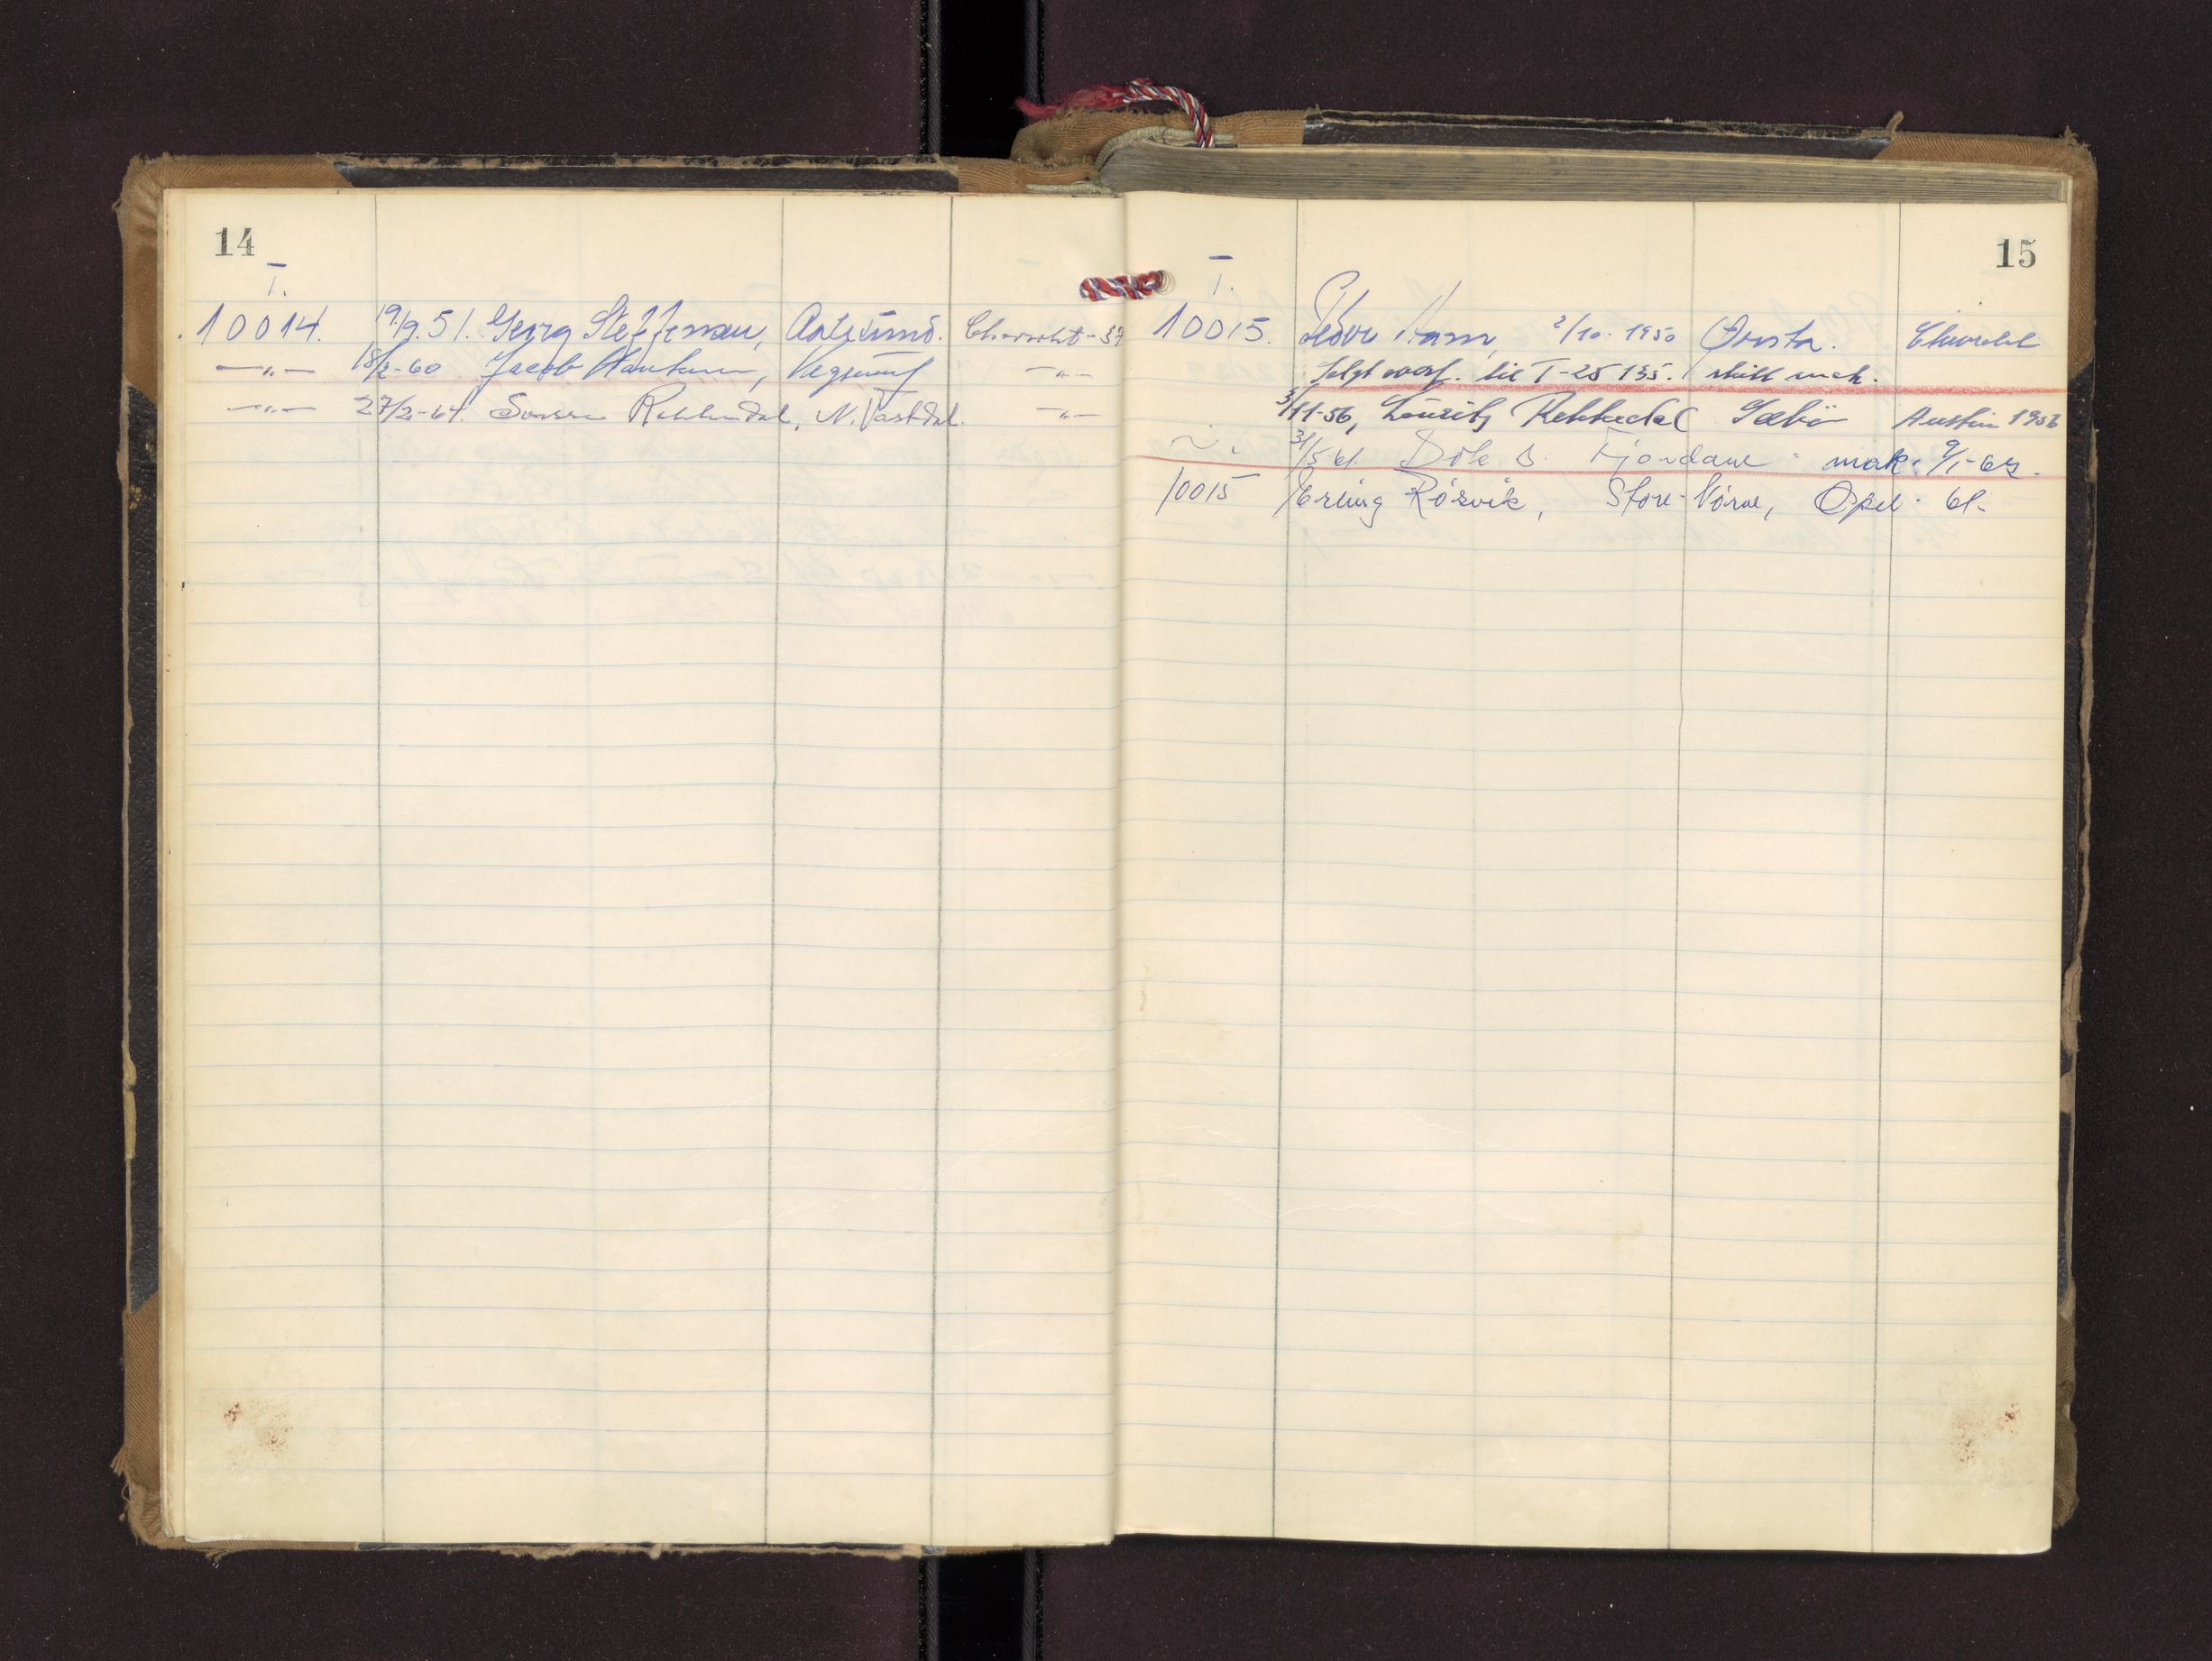 14
T.
10014. 19/9.51. Georg Steffensen, Aalesund. Chevrolet-37
—"— 18/2-60 Jacob Haukenes, Vegsund —"—
—"— 27/2-64. Sverre Rekkedal, N. Vartdal. —"—
15
T.
10015. Peder Ham, 2/10-1950 Ørsta. Chevrolet
Solgt til T-25135. skilt mak.
3/11-56, Lauritz Rekkedal Sæbø Austin 1953
31/5 61. Sole S. Fjordane mak. 9/1-63.
10015 Erling Rósvik, Store-Vórne, Opel 61.